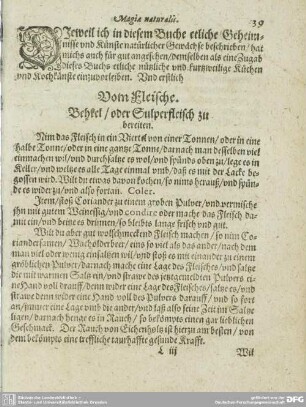 Magia naturalis. 39
Dieweil ich in diesem Buche etliche Geheim-
nisse und Künste natürlicher Gewächse beschrieben / hat
michs auch für gut angesehen / demselben als eine Zugab
dieses Buchs etliche nützliche und kurtzweilige Küchen
und Kochkünste einzuverleiben. Und erstlich
Vom Fleische.
Behkel / oder Sulperfleisch zu
bereiten.
Nim das Fleisch in ein Viertel von einer Tonnen / oder in eine
halbe Tonne / oder in eine gantze Tonne / darnach man desselben viel
einmachen wil / und durchsaltze es wol / und spünds oben zu / lege es in
Keller / und weltze es alle Tage einmal umb / daß es mit der Lacke be-
gossen wird. Wilt du etwas davon kochen / so nims herauß / und spün-
de es wider zu / und also fortan. Coler.
Item / stoß Coriander zu einem groben Pulver / und vermische
ihn mit gutem Weinessig / und condire oder mache das Fleisch da-
mit ein / und beine es drinnen / so bleibts lange frisch und gut.
Wilt du aber gut wolschmeckend Fleisch machen / so nim Co-
riandersamen / Wacholderbeer / eins so viel als das ander / nach dem
man viel oder wenig einsaltzen wil / und stoß es mit einander zu einem
gröblichen Pulver / darnach mache eine Lage des Fleisches / und saltze
die mit truckenem Saltz ein / und strawe des jetztgemeldten Pulvers ei-
ne Hand voll drauff / denn wider eine Lage des Fleisches / saltze es / und
strawe denn wider eine Hand voll des Pulvers darauff / und so fort
an / immer eine Lage umb die ander / und laß also seine Zeit im Saltze
ligen / darnach henge es in Rauch / so bekömpts einen gar lieblichen
Geschmack. Der Rauch von Eichenholtz ist hierzu am besten / von
dem bekömpts eine treffliche taurhaffte gesunde Krafft.
L iij Wil